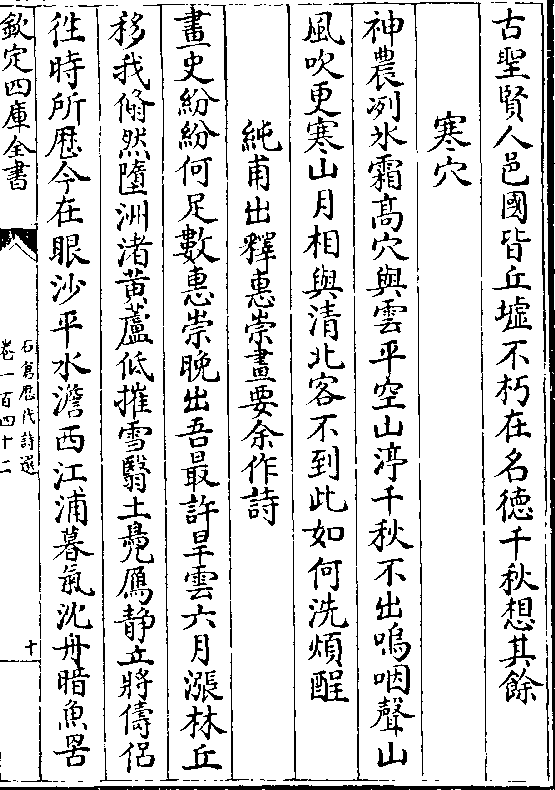 古聖賢人邑國皆丘墟不朽在名德千秋想其餘
寒穴
神農冽氷霜髙穴與雲平空山渟千秋不出嗚咽聲山
風吹更寒山月相與清北客不到此如何洗煩酲
純甫出釋惠崇畫要余作詩
畫史紛紛何足數惠崇晩出吾最許旱雲六月漲林丘
移我翛然墮洲渚黄蘆低摧雪翳土鳬鴈静立將儔侣
徃時所歴今在眼沙平水澹西江浦暮氣沈舟暗魚罟
欽定四庫全書
石倉歴代詩選
卷一百四十二
十